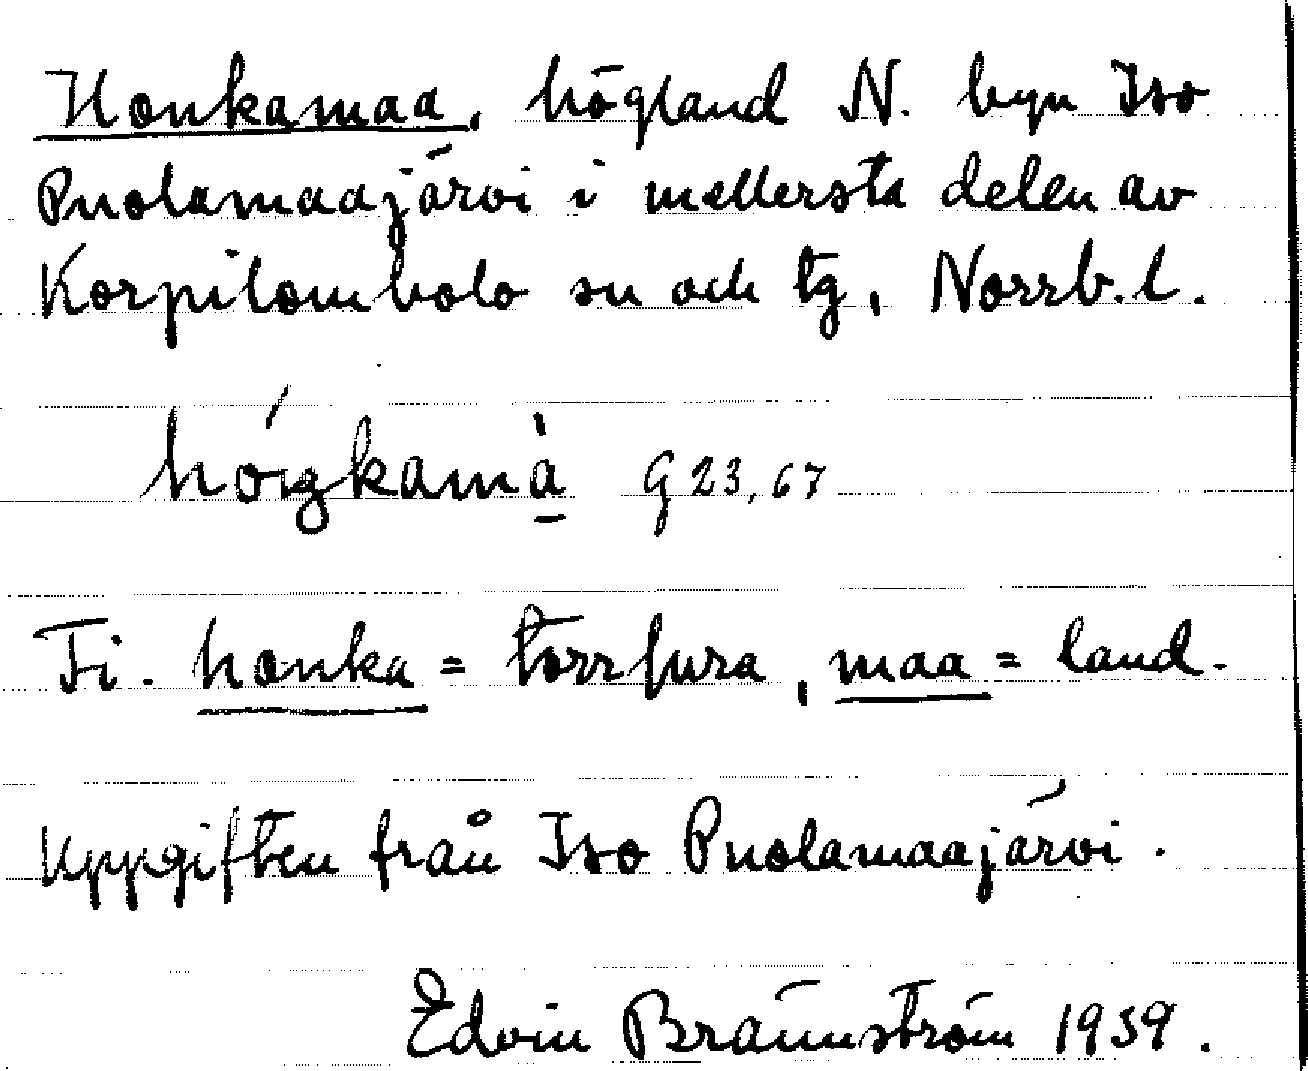 Honkamaa, högland N. byn Iso
Puolamaajärvi i mellersta delen av
Korpilombolo sn och tg, Norrb.l.
G 23, 67
Fi. honka = torrfura, maa = land.
Uppgiften från Iso Puolamaajärvi.
Edvin Brännström 1939.